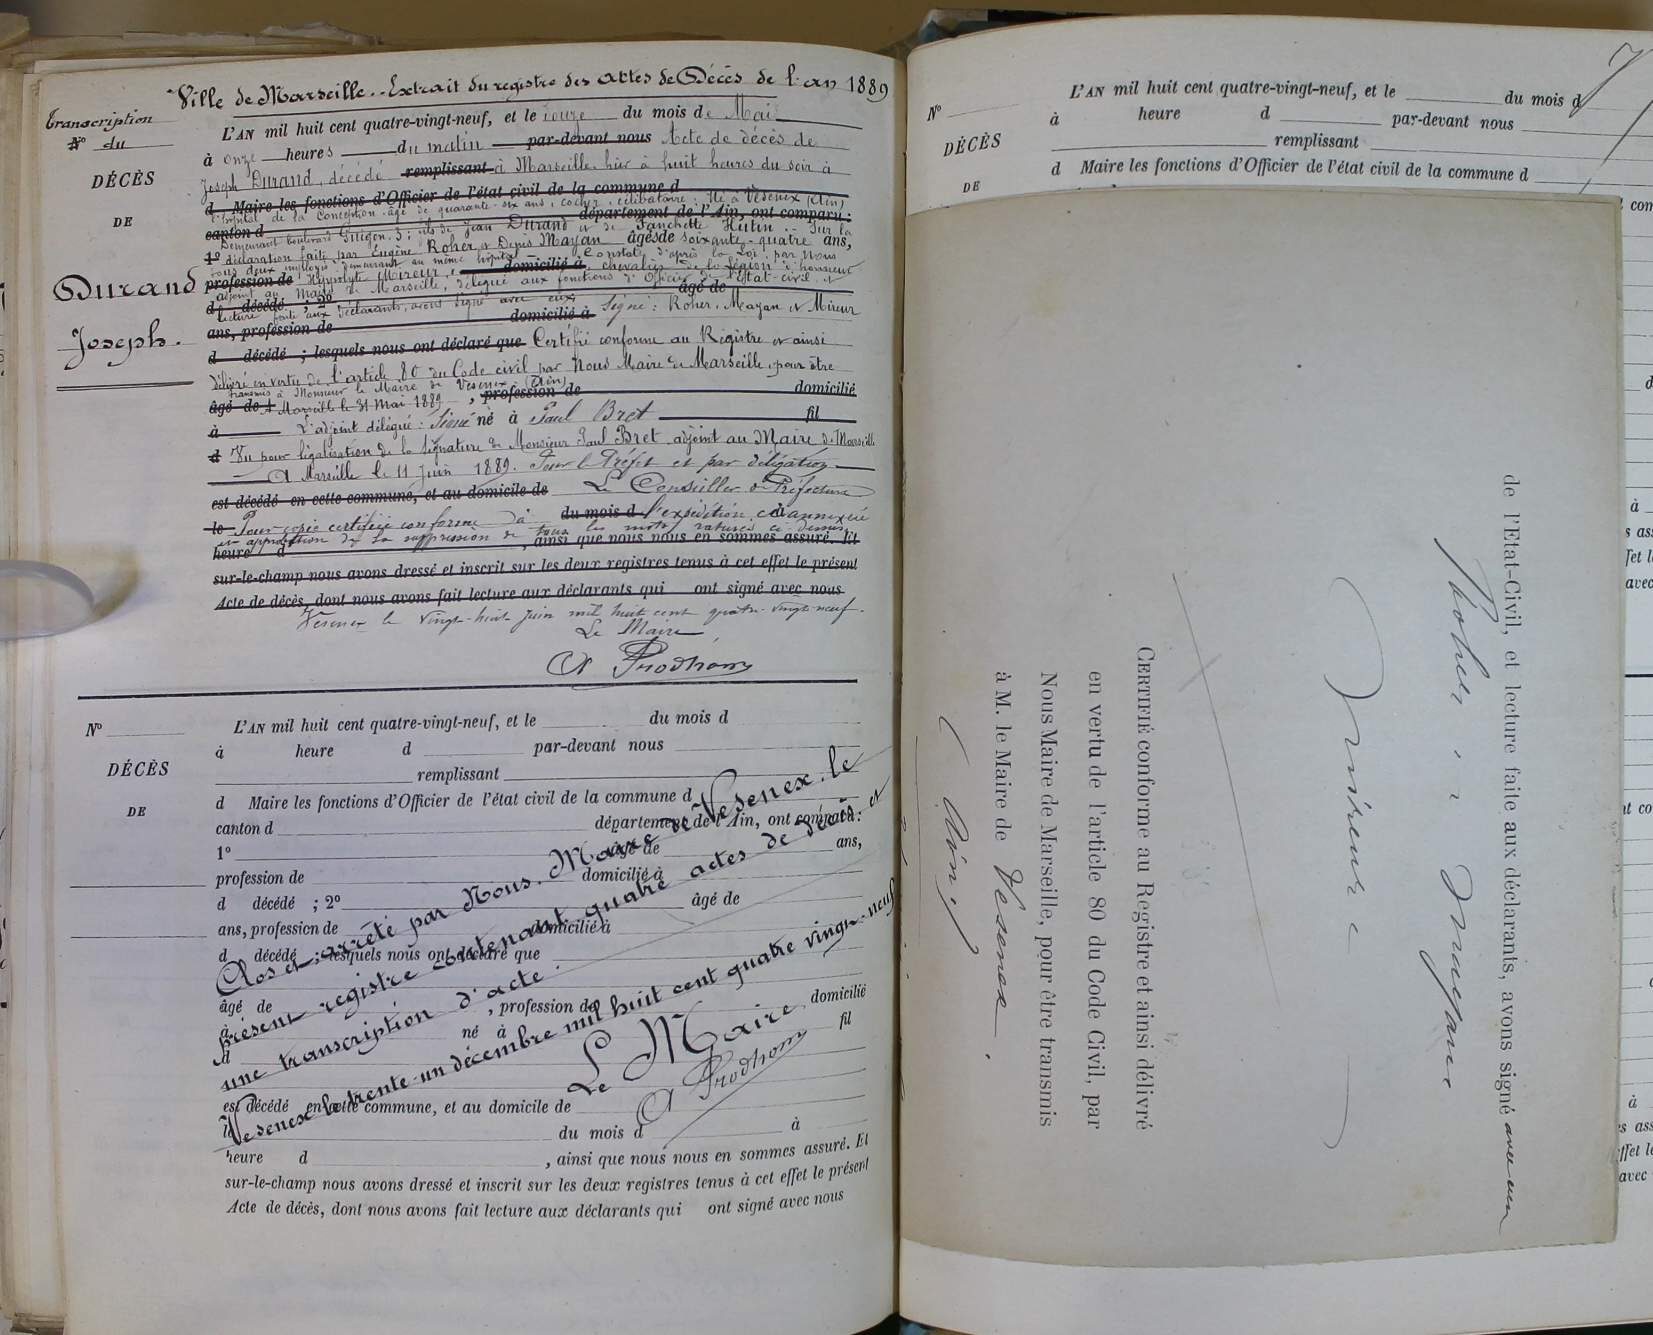 Ville de Marseille.. Extrait du registre des actes de Décès de l'an 1889
Transcription
N° du
DÉCÈS
DE
Durand
Joseph.
L'AN mil huit cent quatre-vingt-neuf, et le douze du mois de Mai
à onze heures du matin par-devant nous Acte de décès de
Joseph Durand, décédé remplissant à Marseille hier à huit heures du soir à
d Maire les fonctions d'Officier de l'état civil de la commune d
l'hôpital de la Conception. âgé de quarante-six ans, cocher, célibataire; né à Vésenex (Ain)
canton d département de l'Ain, ont comparu:
Demeurant boulevard 3; fils de Jean Durand et de Fanchette Hutin.. Sur la
1° déclaration faite par Eugène Roher et Denis Mayan âgés de soixante-quatre ans,
tous deux employés demeurant au même hôpital. Constaté d'après la Loi, par Nous
profession de Hippolyte Mireur, domicilié à chevalier de la Légion d'honneur
adjoint au Maire de Marseille, délégué aux fonctions d'Officier de l'État-civil, et
d décédé ; 2° âgé de
lecture faite aux déclarants, avons signé avec eux Signé: Roher. Mayan et Mireur
ans, profession de domicilié à
d décédé ; lesquels nous ont déclaré que Certifié conforme au Registre et ainsi
délivré en vertu de l'article 80 du Code civil par Nous Maire de Marseille, pour être
transmis à Monsieur le Maire de Vesenex (Ain)
âgé de A Marseille le 31 Mai 1889 , profession de domicilié
à L'adjoint délégué: Signé né à Paul Bret fil
d Vu pour légalisation de la Signature de Monsieur Paul Bret adjoint au Maire de Marseille
A Marseille le 11 Juin 1889. Pour le Préfet et par délégation
est décédé en cette commune, et au domicile de Le Conseiller de Préfecture
le Pour copie certifiée conforme à du mois d l'expédition, ci annexée
en approbation de la suppression de tous les mots raturés ci-dessus
heure d , ainsi que nous nous en sommes assuré. Et
sur-le-champ nous avons dressé et inscrit sur les deux registres tenus à cet effet le présent
Acte de décès, dont nous avons fait lecture aux déclarants qui ont signé avec nous
Vésenex le vingt-huit juin mil huit cent quatre-vingt-neuf.
Le Maire
A Prodhom
N°
DÉCÈS
DE
L'AN mil huit cent quatre-vingt-neuf, et le du mois d
à heure d par-devant nous
remplissant
d Maire les fonctions d'Officier de l'état civil de la commune d
canton d département de l'Ain, ont comparu:
1° âgé de ans,
profession de domicilié à
d décédé ; 2° âgé de
ans, profession de domicilié à
d décédé ; lesquels nous ont déclaré que
âgé de , profession de domicilié
à né à fil
d
est décédé en cette commune, et au domicile de
le du mois d à
heure d , ainsi que nous nous en sommes assuré. Et
sur-le-champ nous avons dressé et inscrit sur les deux registres tenus à cet effet le présent
Acte de décès, dont nous avons fait lecture aux déclarants qui ont signé avec nous
Clos et arrêté par Nous. Maire de Vesenex. le
présent registre contenant quatre actes de décès et
une transcription d'acte.
Vesenex le trente-un décembre mil huit cent quatre vingt-neuf
Le Maire
A Prodhom
N°
DÉCÈS
DE
L'AN mil huit cent quatre-vingt-neuf, et le du mois d
à heure d par-devant nous
remplissant
d Maire les fonctions d'Officier de l'état civil de la commune d
de l'Etat-Civil, et lecture faite aux déclarants, avons signé avec eux
Roher et Mayan
Mireur
CERTIFIÉ conforme au Registre et ainsi délivré
en vertu de l'article 80 du Code Civil, par
Nous Maire de Marseille, pour être transmis
à M. le Maire de Vesenex.
(Ain.)